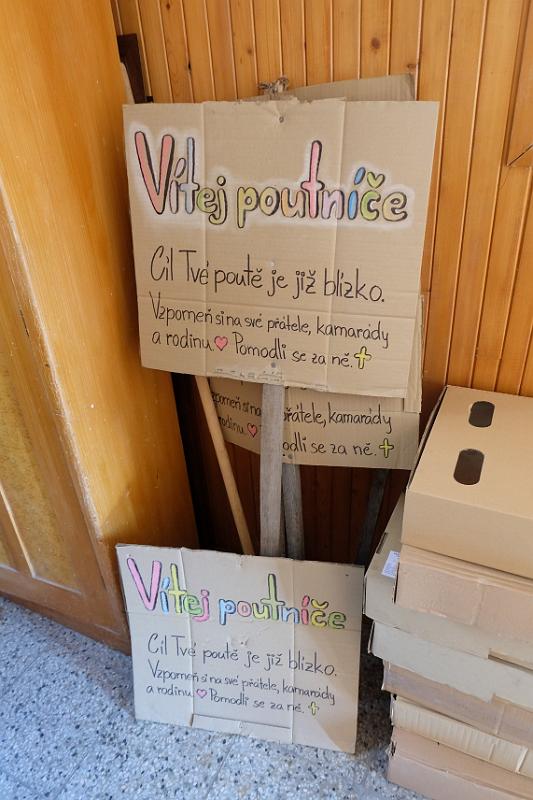 Vítej poutníče
Cíl Tvé poutě je již blízko.
Vzpomeň si na své přátele, kamarády
a rodinu. Pomodli se za ně.
přátele, kamarády
rodinu. odli se za ně.
Vítej poutníče
Cíl Tvé poutě je již blízko.
Vzpomeň si na své přátele, kamarády
a rodinu Pomodli se za ně.